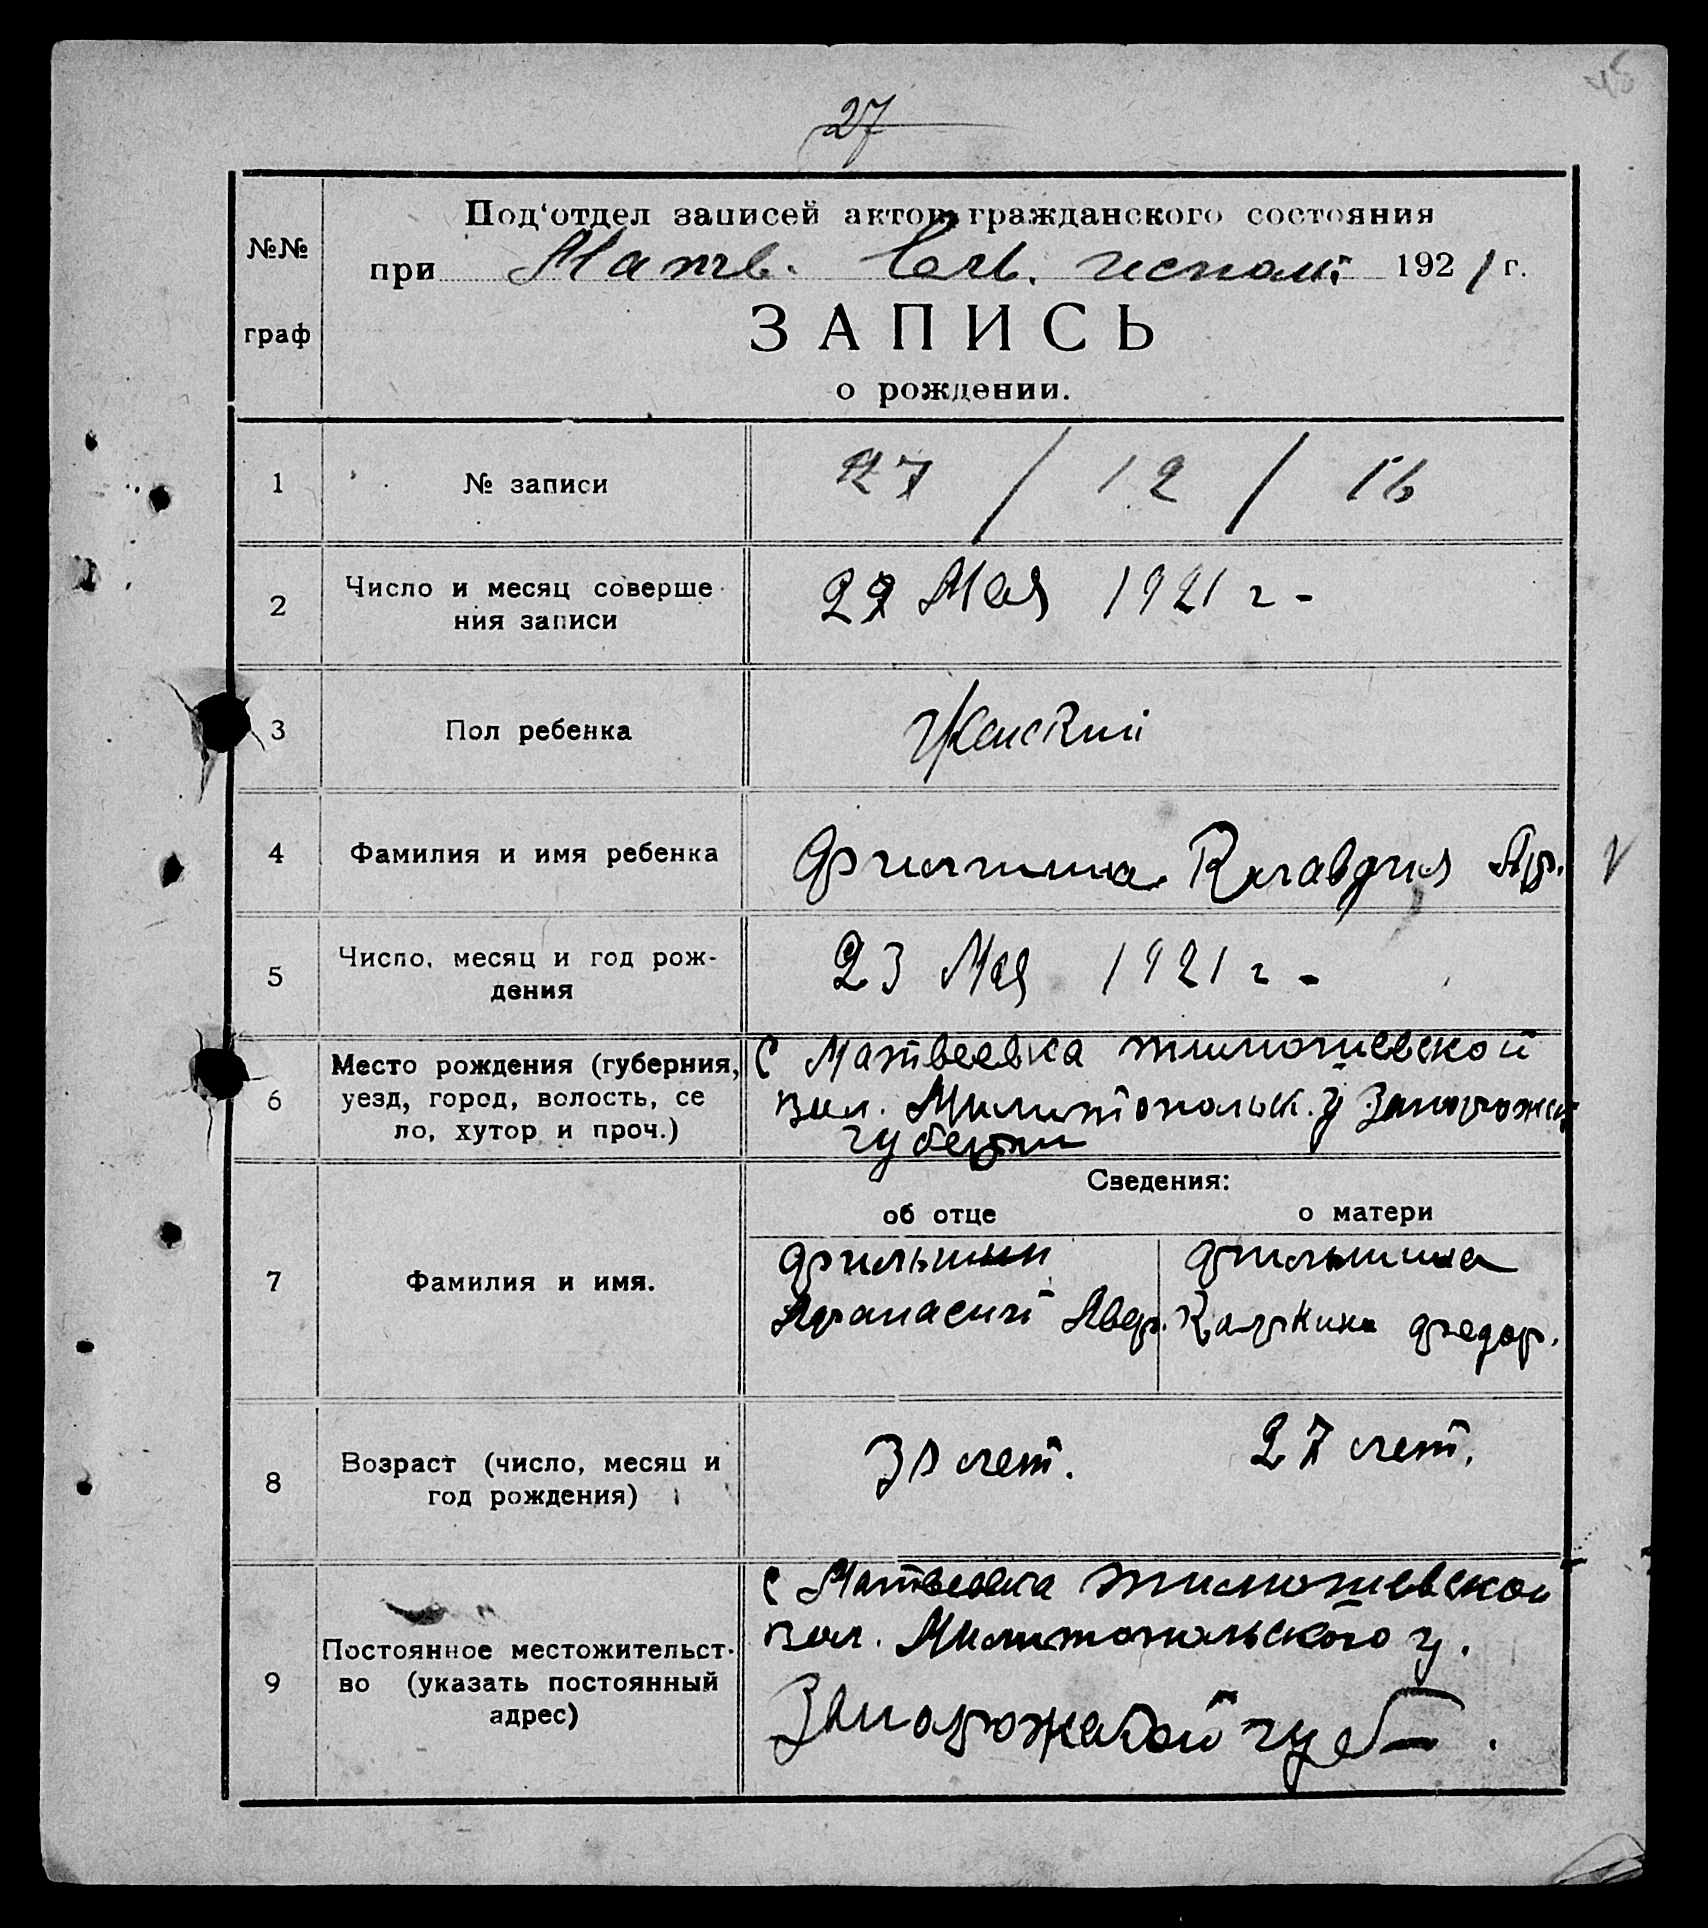 27
№№
граф
Под‘отдел записей актов гражданского состояния
при Матв. исполк 1921 г.
ЗАПИСЬ
о рождении.
1 № записи 27 / 12 / 16
2 Число и месяц соверше
ния записи
27 Мая 1921 г -
3 Пол ребенка Женский
4 Фамилия и имя ребенка Фильшина Клавдия Аф. V
5 Число, месяц и год рож-
дения
23 Мая 1921 г -
6 Место рождения (губерния,
уезд, город, волость, се
ло, хутор и проч.)
с Матвеевка тимошевской
вол. Милитопольск. у Запорожск
губерни
Сведения:
об отце о матери
7 Фамилия и имя.
Фильшин
Афанасий
Фильшина
Федор.
8 Возраст (число, месяц и
год рождения)
30 лет. 27 лет.
9 Постоянное местожительст-
во (указать постоянный
адрес)
с Матвеевка тимошевской
вол. Милитопольского у.
Запорожской губ.